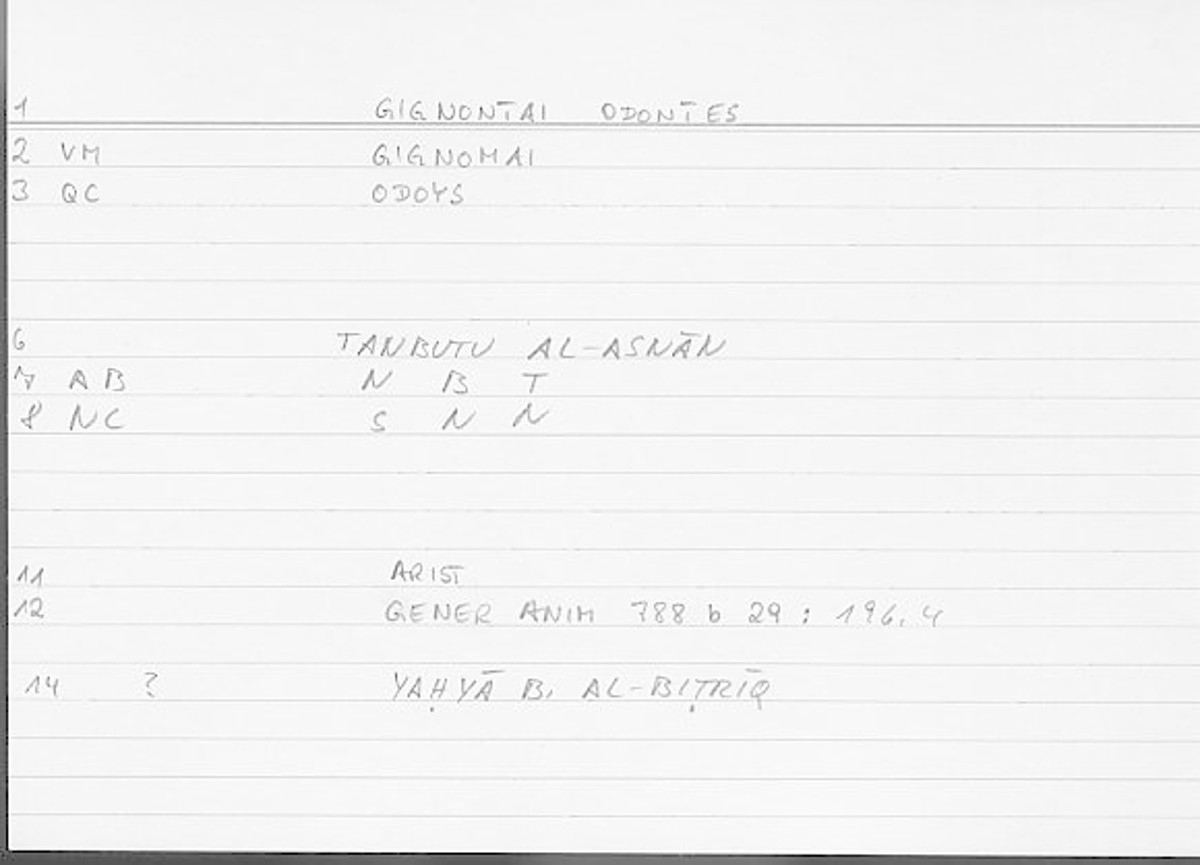 1 GIGNONTAI ODONTES
2 VM GIGNOMAI
3 QC ODOYS
6 TANBUTU AL-ASNĀN
7 AB N B T
8 NC S N N
11 ARIST
12 GENER ANIM 788 b 29 : 196,4
14 ? YAḤYĀ B. AL-BIṬRĪQ